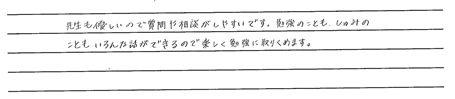 先生も優しいので質問や相談がしやすいです。勉強のことも、しゅみの
こともいろんな話ができるので楽しく勉強に取りくめます。